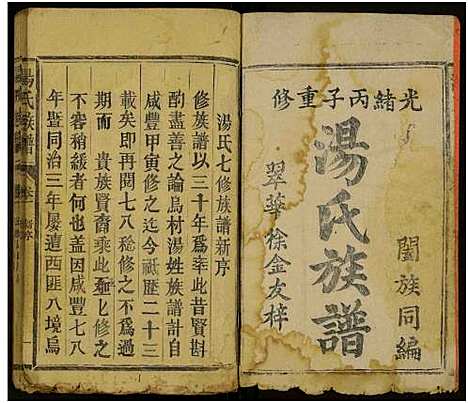 光緒丙子重修
闔族同編
湯氏族譜
翠華徐金友梓
湯氏七修族譜新序
修族譜以三十年爲率此昔賢斟
酌盡善之論烏村湯姓族譜計自
咸豐甲寅修之迄今祗歷二十三
載矣即再閱七八稔修之不爲過
期而 貴族賢裔乘此 七修之
不容稍緩者何也盖因咸豐七八
年暨同治三年屢遭西匪八境烏
湯氏族譜 卷一 新序